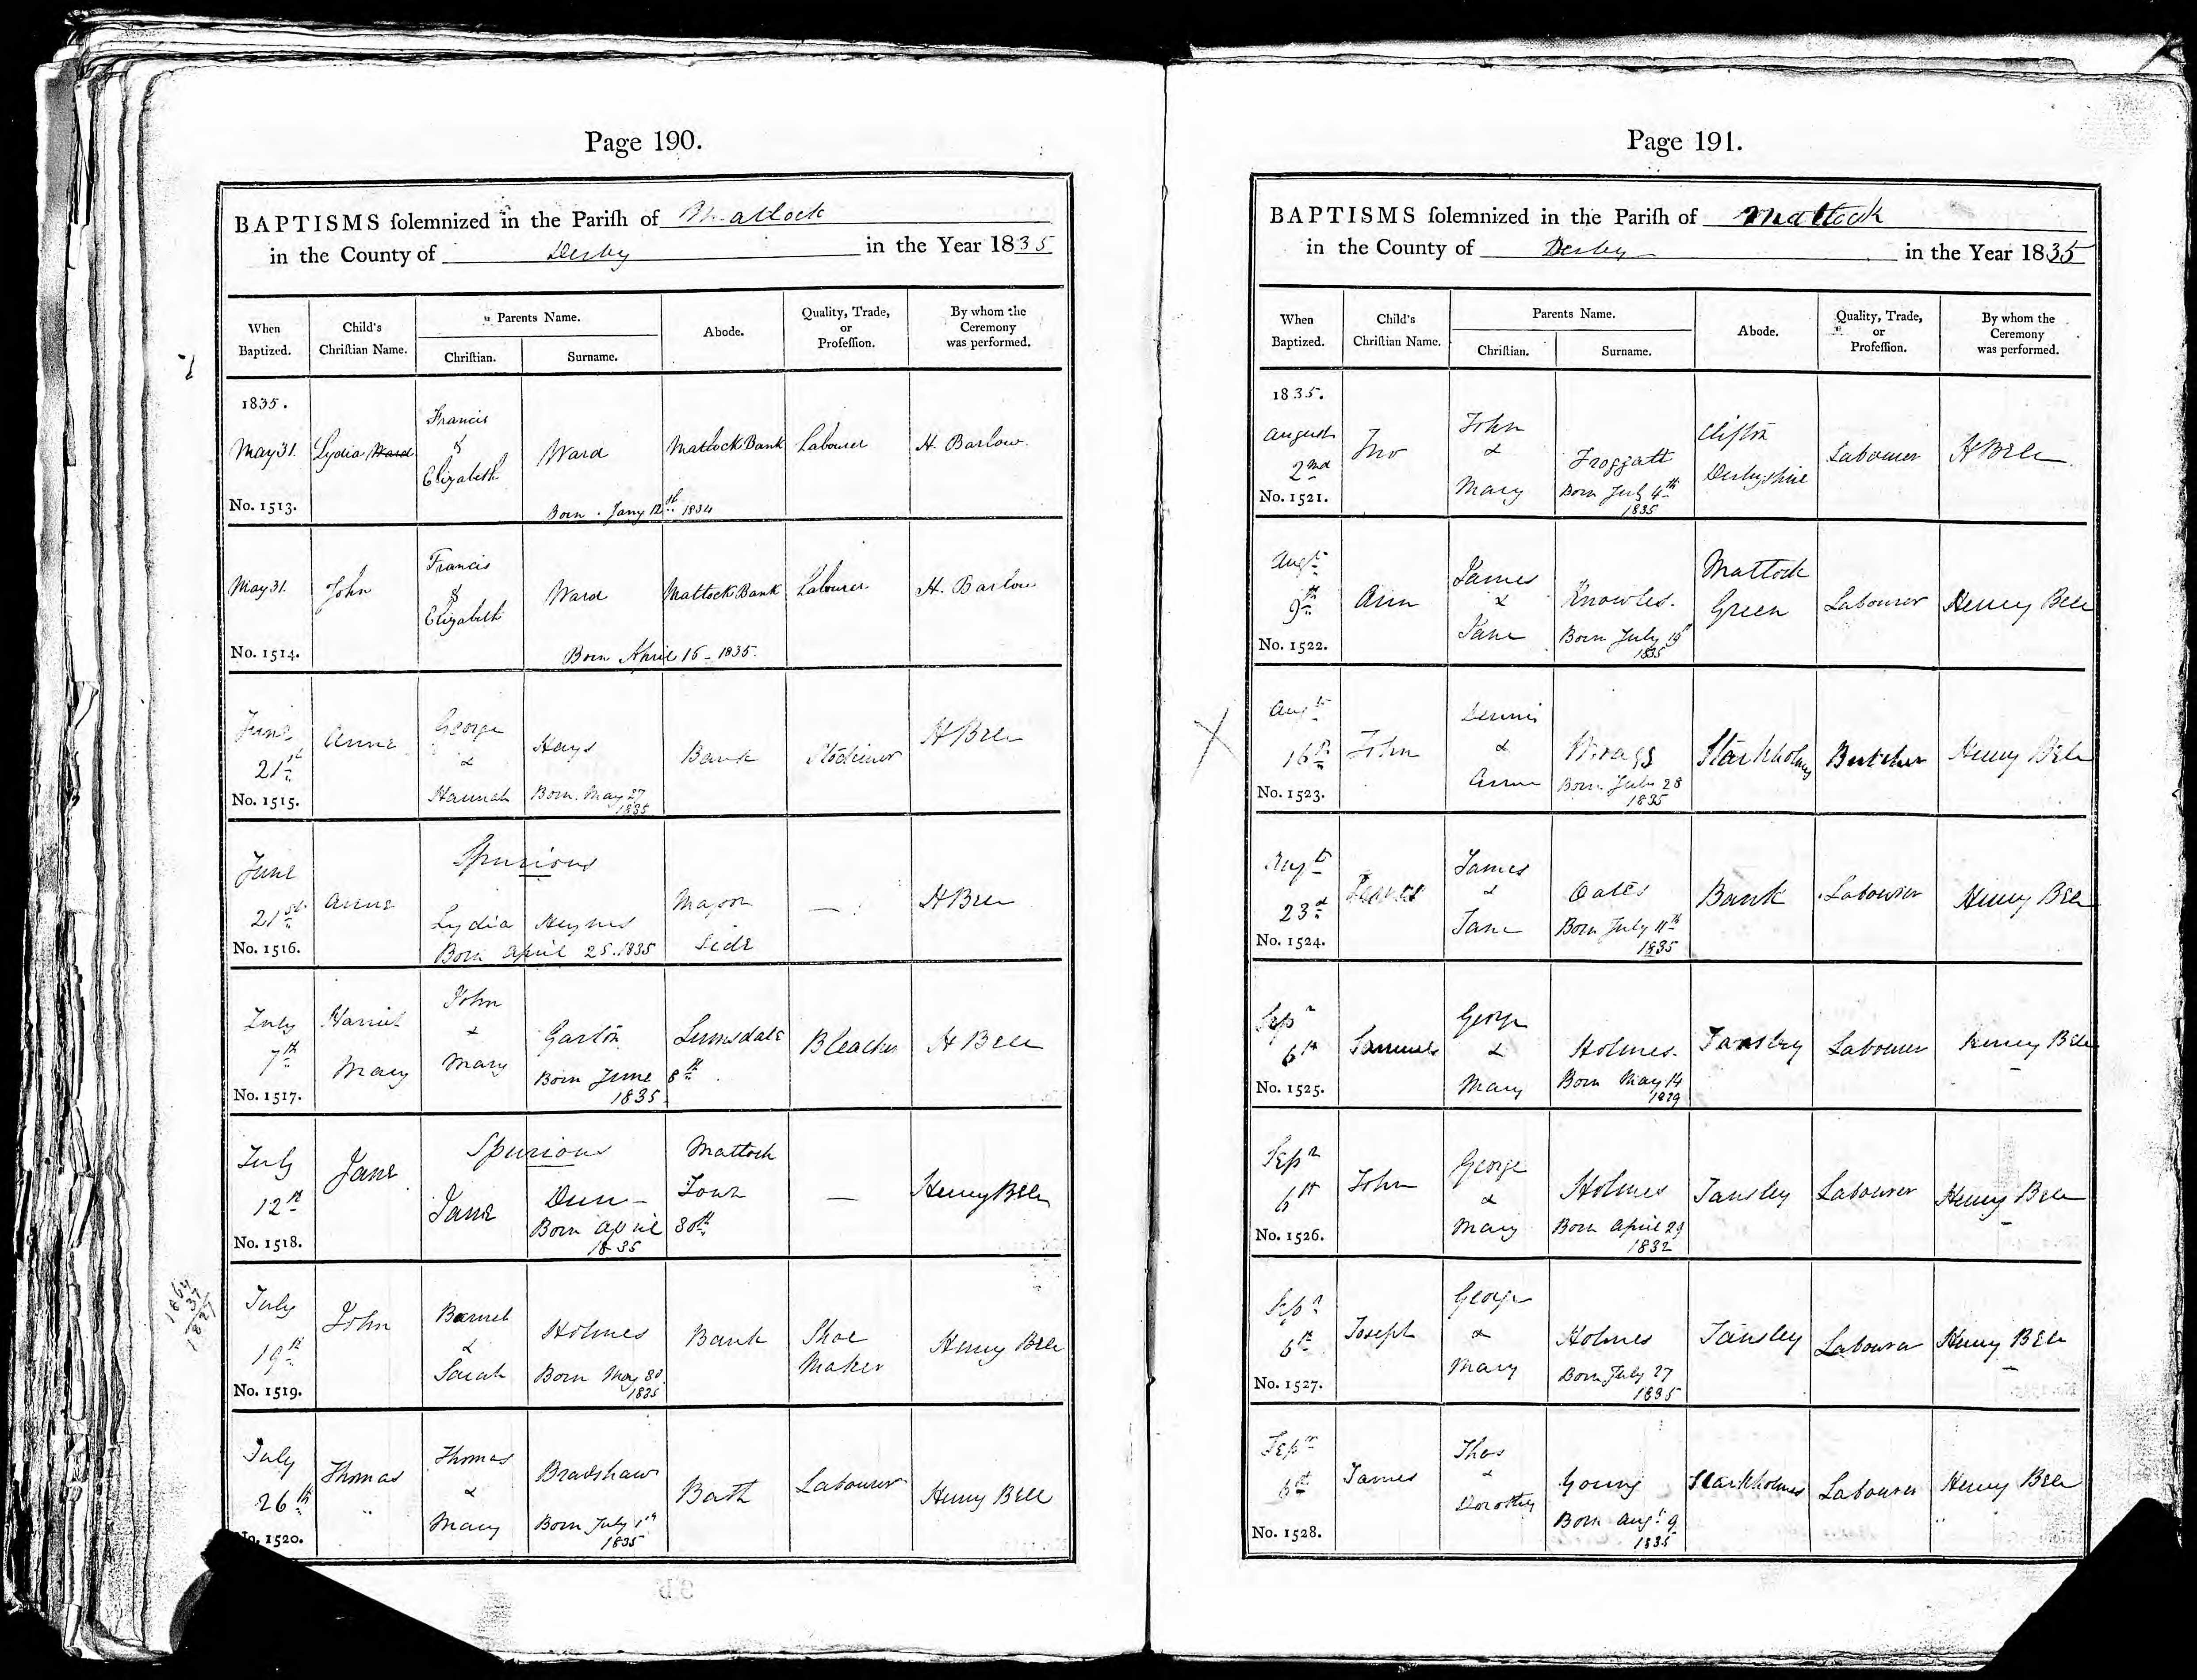 Page 190.
BAPTISMS solemnized in the Parish of Matlock
in the County of Derby in the Year 1835
When Baptized.
Child's Christian Name.
Parents Name.
Christian.
Surname.
Abode.
Quality, Trade, or Profession.
By whom the Ceremony was performed.
1835.
May 31. Lydia Ward Francis & Elizabeth Ward Matlock Bank Labourer H. Barlow.
No. 1513. Born Jany 12th 1834
May 31. John Francis & Elizabeth Ward Matlock Bank Labourer H. Barlow
No. 1514. Born April 15 - 1835.
June 21st Anne George & Hannah Hays Bank H Bell
No. 1515. Born May 27 1835
June 21st Anne Spurious Lydia Heynes Side — H Bell
No. 1516. Born April 25. 1835
July 7th Harriet Mary John & Mary Garton Lumsdale Bleacher H Bell
No. 1517. Born June 8th 1835
July 12th Jane Spurious Jane Dun - Matlock Town — Henry Bell
No. 1518. Born April 30th 1835
July 19th John & Sarah Holmes Bank Shoe Maker Henry Bell
No. 1519. Born May 30 1835
July 26th Thomas Thomas & Mary Bradshaw Bath Labourer Henry Bell
No. 1520. Born July 1st 1835
1864
37
1827
Page 191.
BAPTISMS solemnized in the Parish of Matlock
in the County of Derby in the Year 1835
When Baptized.
Child's Christian Name.
Parents Name.
Christian.
Surname.
Abode.
Quality, Trade, or Profession.
By whom the Ceremony was performed.
1835.
August 2nd Jno John & Mary Froggatt Clifton Derbyshire Labourer H Bell
No. 1521. Born July 4th 1835
Augt 9th Ann James & Jane Knowles. Matlock Green Labourer Henry Bell
No. 1522. Born July 1835
Augt 16th John Dennis & Anne Wragg Starkholmes Butcher Henry Bell
No. 1523. Born July 28 1835
Augt 23d James & Jane Oates Bank Labourer Henry Bell
No. 1524. Born July 11th 1835
Sepr 6th Samuel George & Mary Holmes. Tansley Labourer Henry Bell
No. 1525. Born May 14 1829
Sepr 6th John George & Mary Holmes Tansley Labourer Henry Bell
No. 1526. Born April 29 1832
Sepr 6th Joseph George & Mary Holmes Tansley Labourer Henry Bell
No. 1527. Born July 27 1835
Sepr 6th James Thos & Dorothy Young Starkholmes Labourer Henry Bell
No. 1528. Born Augt 9 1835